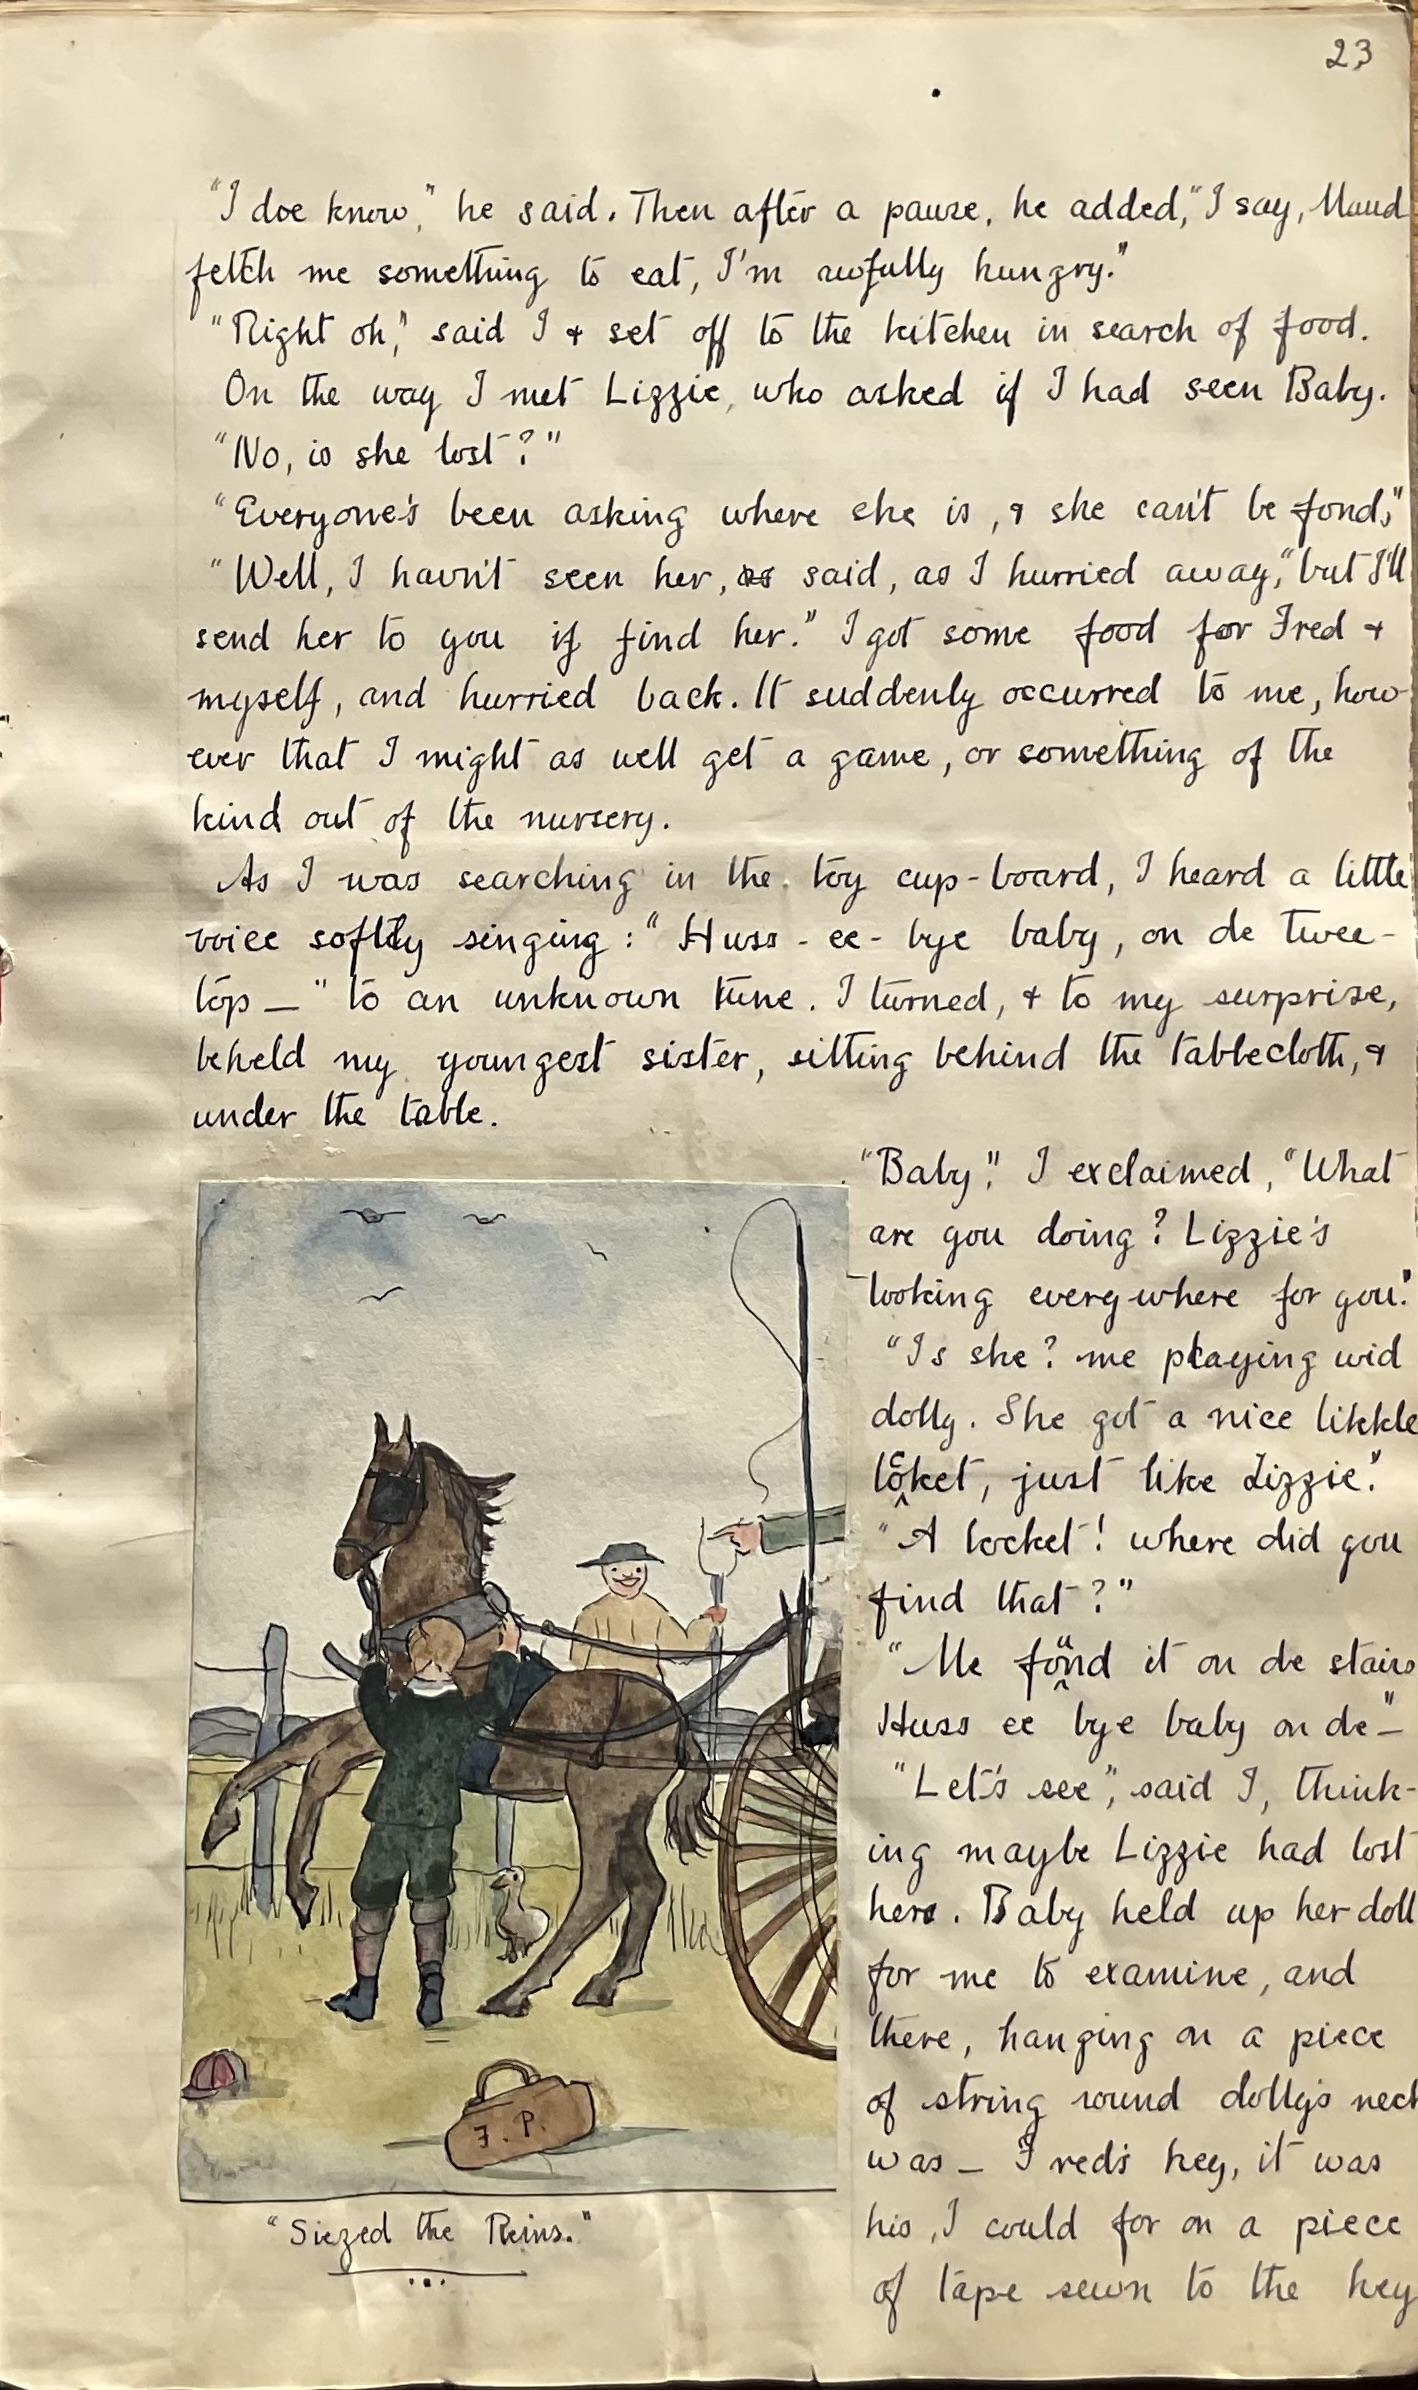 23
"I doe know," he said. Then after a pause, he added, "I say, Maud
fetch me something to eat, I'm awfully hungry."
"Right oh," said I & set off to the kitchen in search of food.
On the way I met Lizzie, who asked if I had seen Baby.
"No, is she lost?"
"Everyone's been asking where she is, & she can't be fond,"
"Well, I havn't seen her, as said, as I hurried away, "but I'll
send her to you if find her." I got some food for Fred &
myself, and hurried back. It suddenly occurred to me, how-
ever that I might as well get a game, or something of the
kind out of the nursery.
As I was searching in the toy cup-board, I heard a little
voice softly singing: "Huss-ee-bye baby, on de twee-
top—" to an unknown tune. I turned, & to my surprise,
beheld my youngest sister, sitting behind the tablecloth, &
under the table.
"Baby," I exclaimed, "What
are you doing? Lizzie's
looking everywhere for you."
"Is she? me playing wid
dolly. She got a nice likkle
locket, just like Lizzie."
"A locket! where did you
find that?"
"Me found it on de stairs
Huss ee bye baby on de—"
"Let's see," said I, think-
ing maybe Lizzie had lost
hers. Baby held up her doll
for me to examine, and
there, hanging on a piece
of string round dolly's neck
was — Fred's key, it was
his, I could for on a piece
of tape sewn to the key
F. P.
"Siezed the Reins."